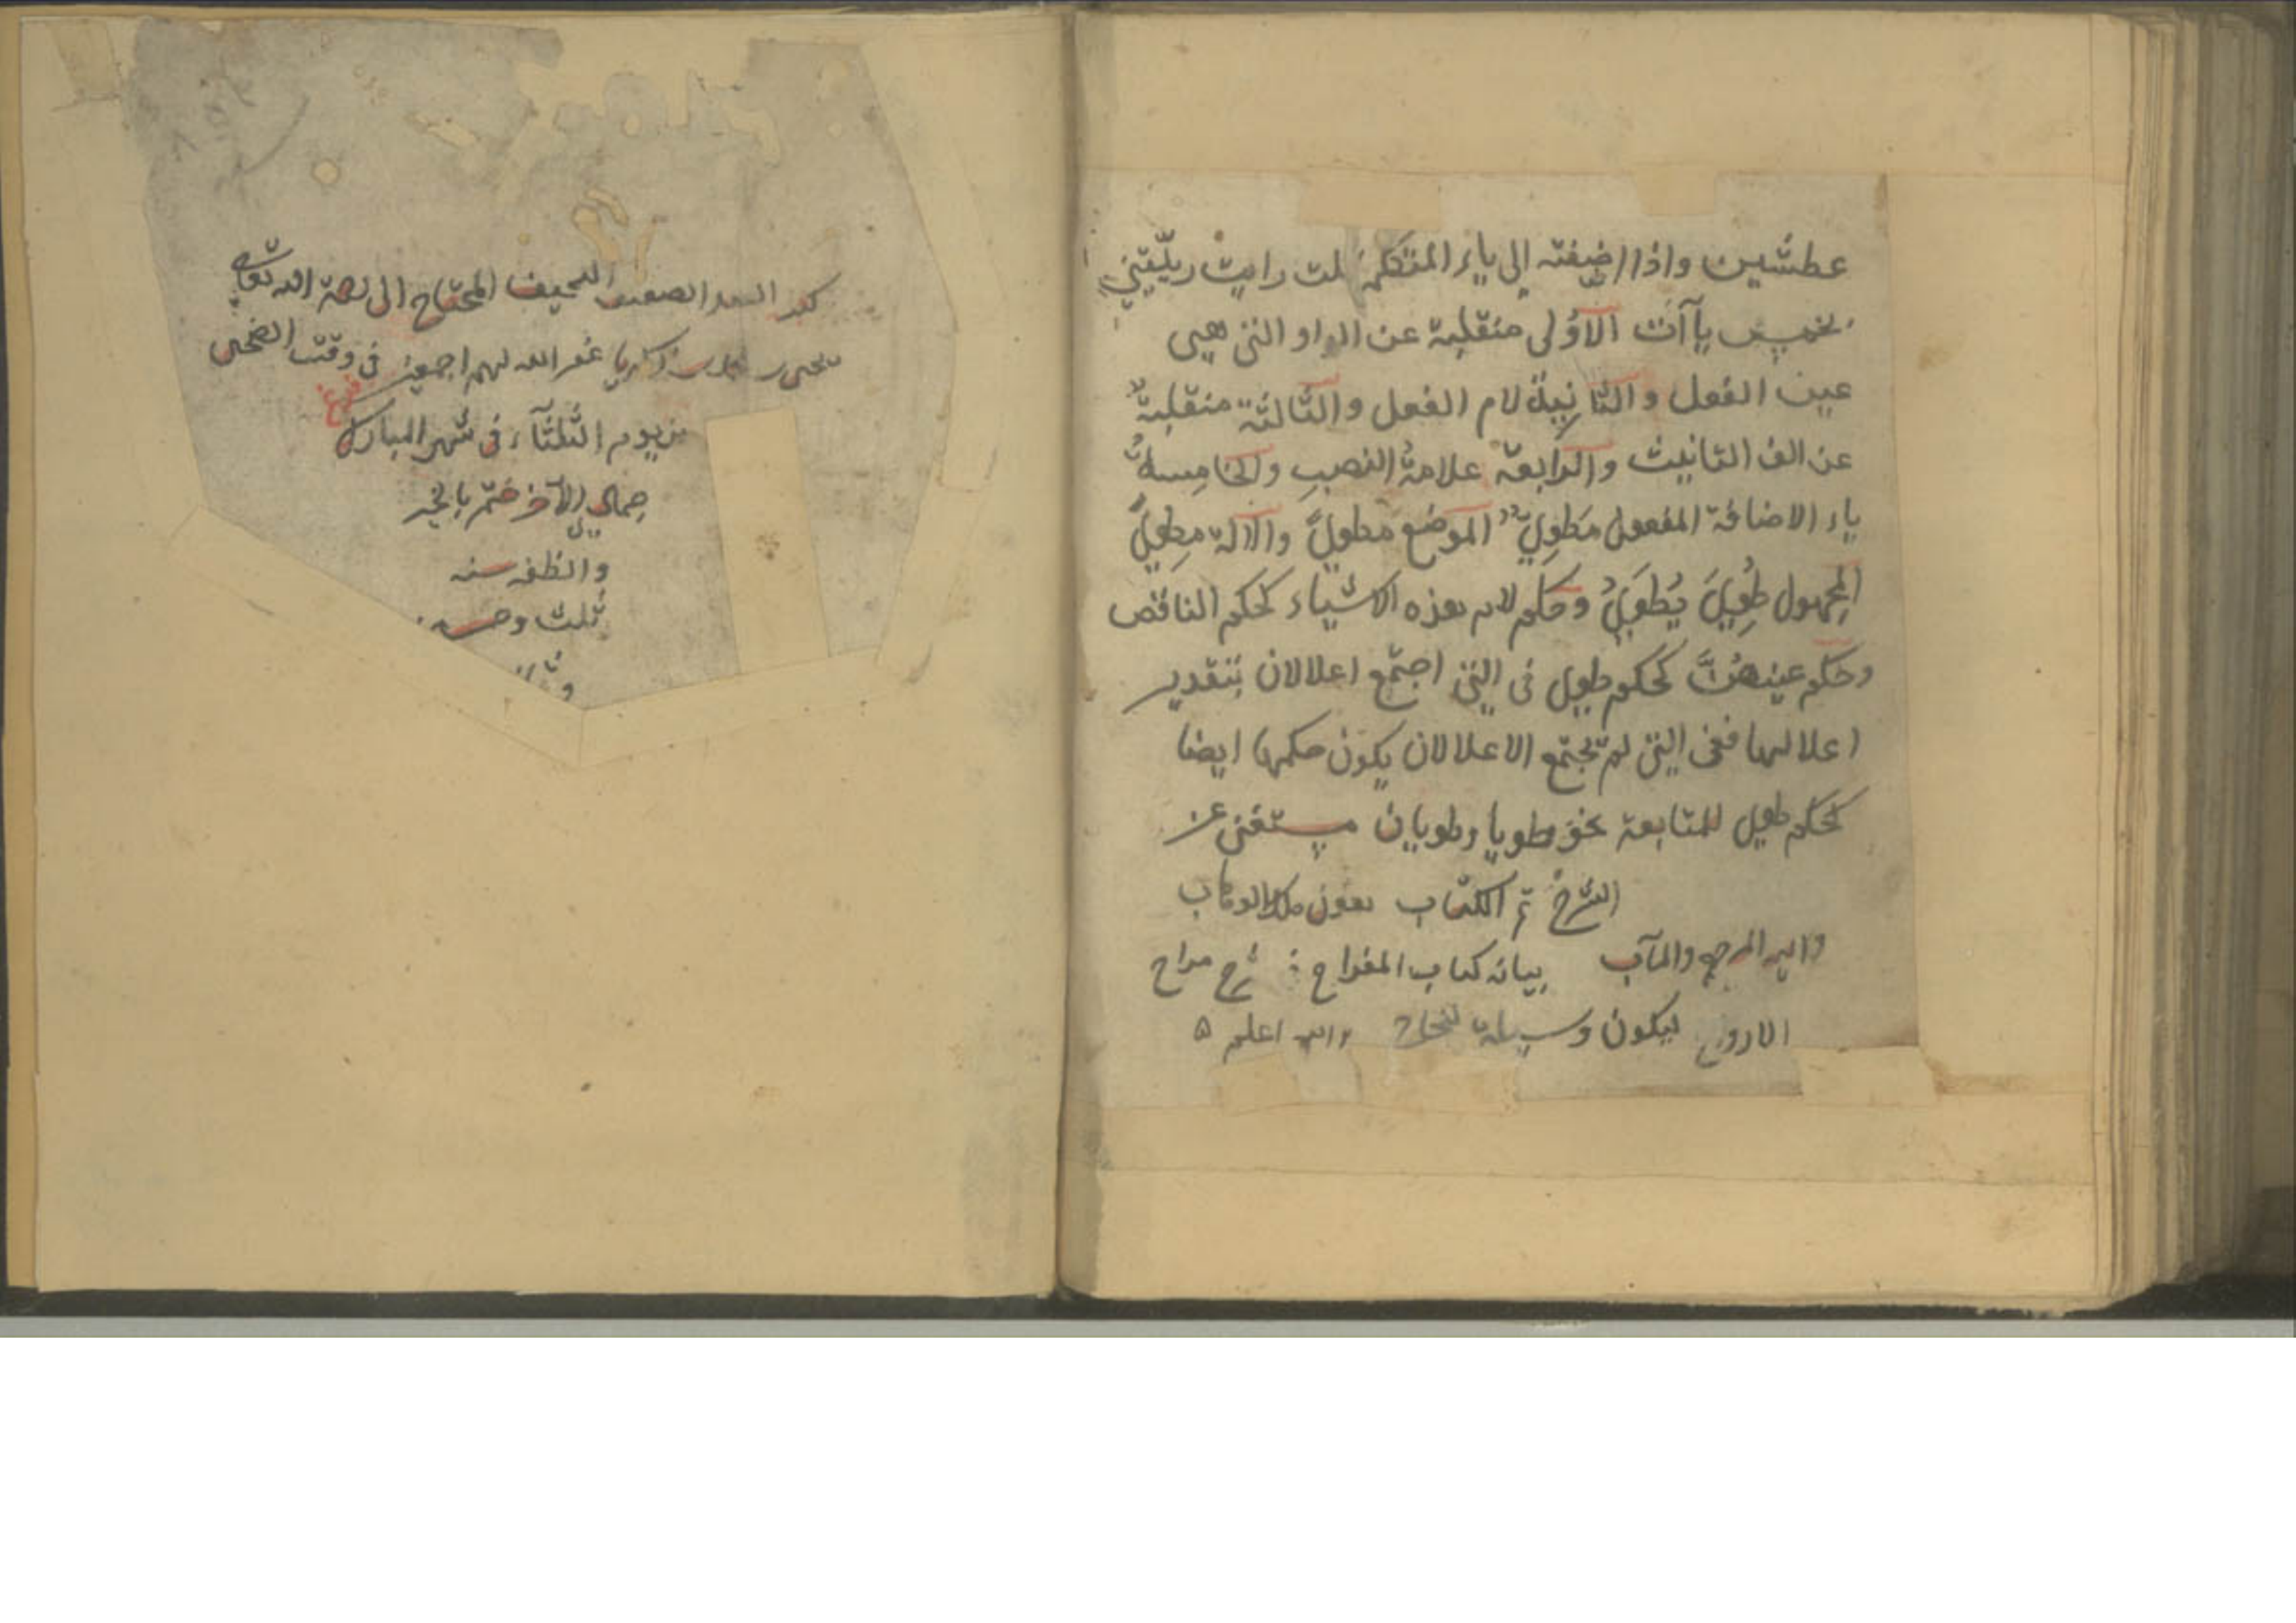 عطشين واذا اضيفته الى ياء المتكلم قلت رايت ريّيتيّ
بخمس يآآت الاوُلى منقلبة عن الواو التى هى
عين الفعل والثانية لام الفعل والثالثة منقلبةٌ
عن الف التانيث والرابعة علامةُ النصبِ والخامسةُ
ياء الاضافة المفعول مَطوِىٌّ الموضع مطوىً والآلة مِطوىً
المجهول طُوِىَ يُطوَىُ وحكم لام هذه الاشياء كحكم الناقص
وحكم عينهنَّ كحكم طوى فى التى اجتمع اعلالان بتقدير
اعلالهما ففى التى لم تجتمع الاعلالان يكون حكمها ايضا
كحكم طوى للمتابعة نحو طويا وطويان مستغنى عن
الشرح تم الكتاب بعون ملك الوهاب
واليه المرجع والمآب بيانه كتاب المفراح شرح مراح
الاروح ليكون وسيلة والله اعلم
العبد الضعيف النحيف المحتاج الى رحمة الله تعالى
يحيى بن زكريا غفر الله لهم اجمعين فى وقت الضحى
من يوم الثلثآء فى شهر المبارك
جمادى الآخر ختم بالخير
والظفر سنه
ثلث وخمسين